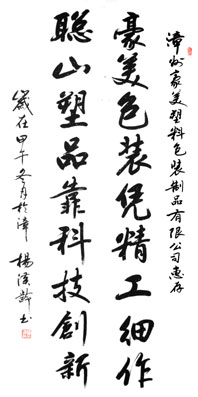 漳州豪美塑料包裝制品有限公司惠存
豪美包裝凭精工細作
聪山塑品靠科技創新
歲在甲午冬月於漳 楊溪 书